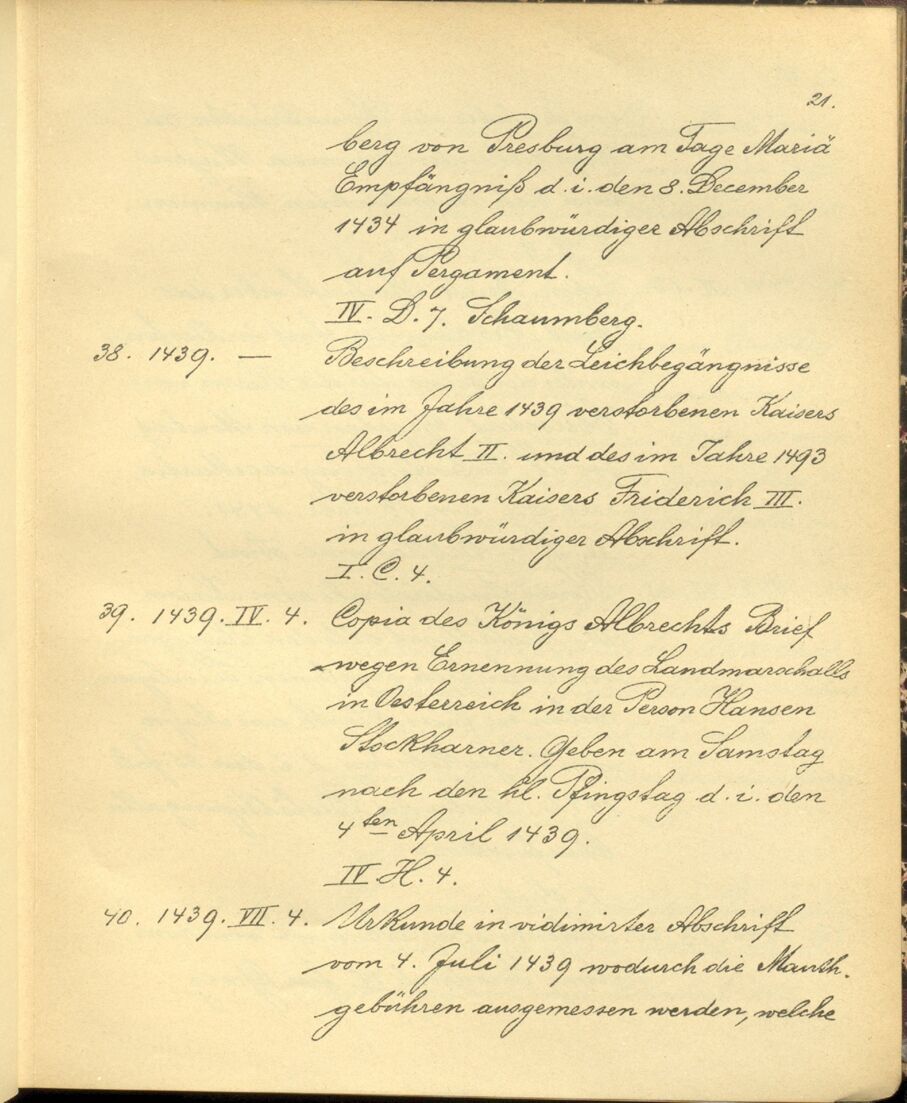 21.
berg von Presburg am Tage Mariä
Empfängniß d. i. den 8. December
1434 in glaubwürdiger Abschrift
auf Pergament.
IV. D. 7. Schaumberg.
38. 1439. — Beschreibung der Leichbegängnisse
des im Jahre 1439 verstorbenen Kaisers
Albrecht II. und des im Jahre 1493
verstorbenen Kaisers Friderich III.
in glaubwürdiger Abschrift.
I. C. 4.
39. 1439. IV. 4. Copia des Königs Albrechts Brief
wegen Ernennung des Landmarschalls
in Oesterreich in der Person Hansen
Stockharner. Geben am Samstag
nach den hl. Pfingstag d. i. den
4ten April 1439.
IV H. 4.
40. 1439. VII. 4. Urkunde in vidimirter Abschrift
vom 4. Juli 1439 wodurch die Mauth-
gebühren ausgemessen werden, welche